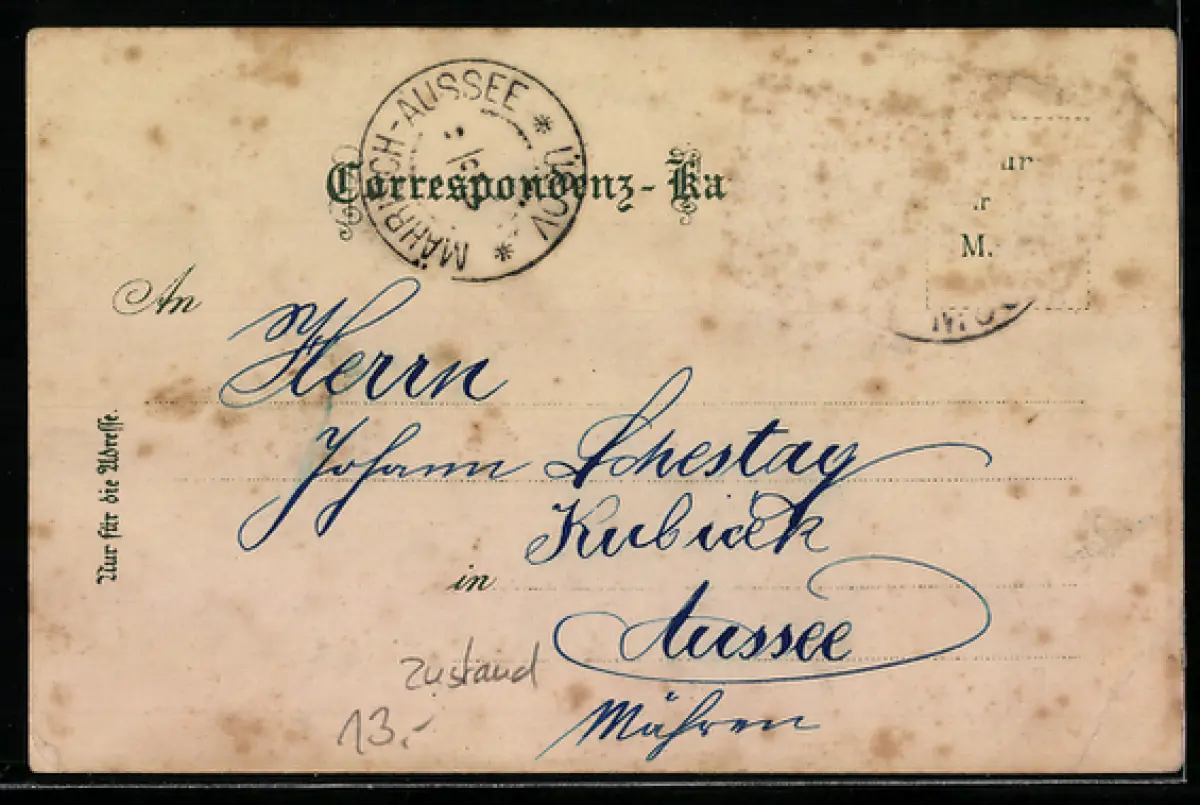 MÄHRISCH-AUSSEE * ÚSOV *
Correspondenz-Ka
M.
An
Herrn
Johann Schestag
Kubicek
in
Aussee
Mähren
Nur für die Adresse.
Zustand
13.-